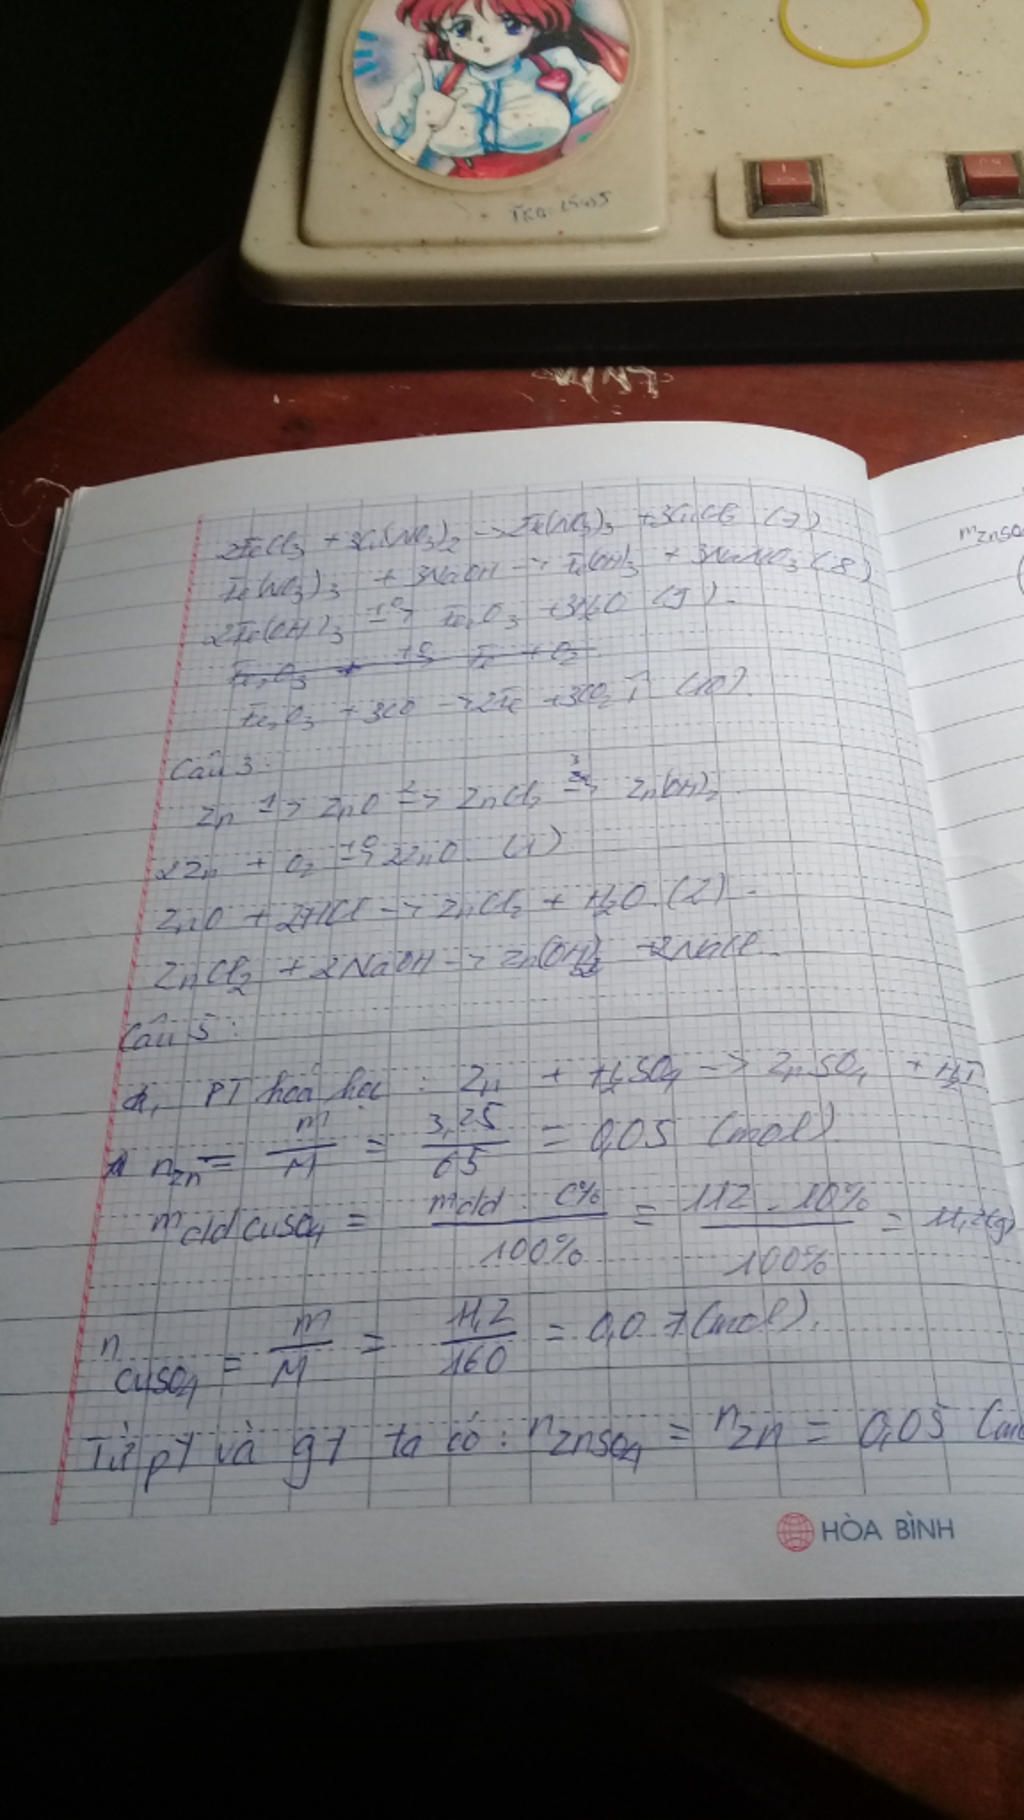 2FeCl3 + 3Cu(NO3)2 -> 2Fe(NO3)3 + 3CuCl2 (7)
Fe(NO3)3 + 3NaOH -> Fe(OH)3 + 3NaNO3 (8)
2Fe(OH)3 -t0-> Fe2O3 + 3H2O (9).
Fe2O3 -t0-> Fe + O2
Fe2O3 + 3CO -> 2Fe + 3CO2 ↑ (10).
Câu 3:
Zn -1-> ZnO -2-> ZnCl2 -3-> Zn(OH)2
2Zn + O2 -t0-> 2ZnO. (1)
ZnO + 2HCl -> ZnCl2 + H2O. (2).
ZnCl2 + 2NaOH -> Zn(OH)2 + 2NaCl.
Câu 5:
PT hoá học: Zn + H2SO4 -> ZnSO4 + H2↑
nZn = m/M = 3,25/65 = 0,05 (mol)
mdd CuSO4 = mdd . C%/100% = 112 . 10%/100% = 11,2(g)
nCuSO4 = m/M = 11,2/160 = 0,07(mol).
Từ pt và gt ta có: nZnSO4 = nZn = 0,05
HÒA BÌNH
mZnSO